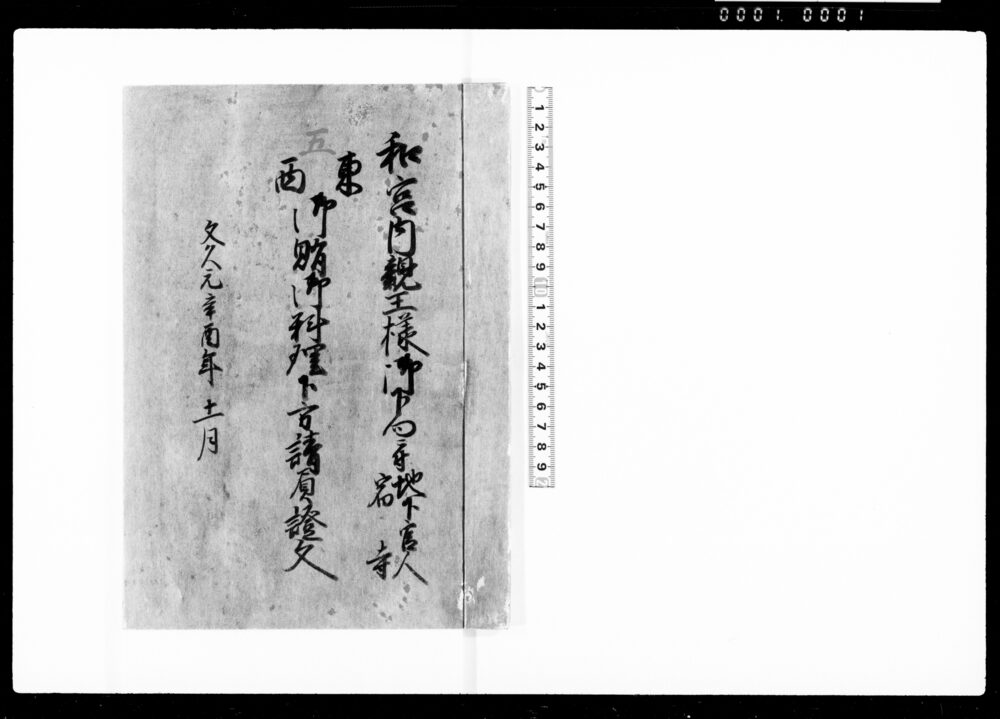 0001 0001
和宮内親王様御下向ニ付地下官人
宿寺
東
西
御賄御料理下方請負證文
文久元辛酉年十一月
五
1 2 3 4 5 6 7 8 9 10 1 2 3 4 5 6 7 8 9 2